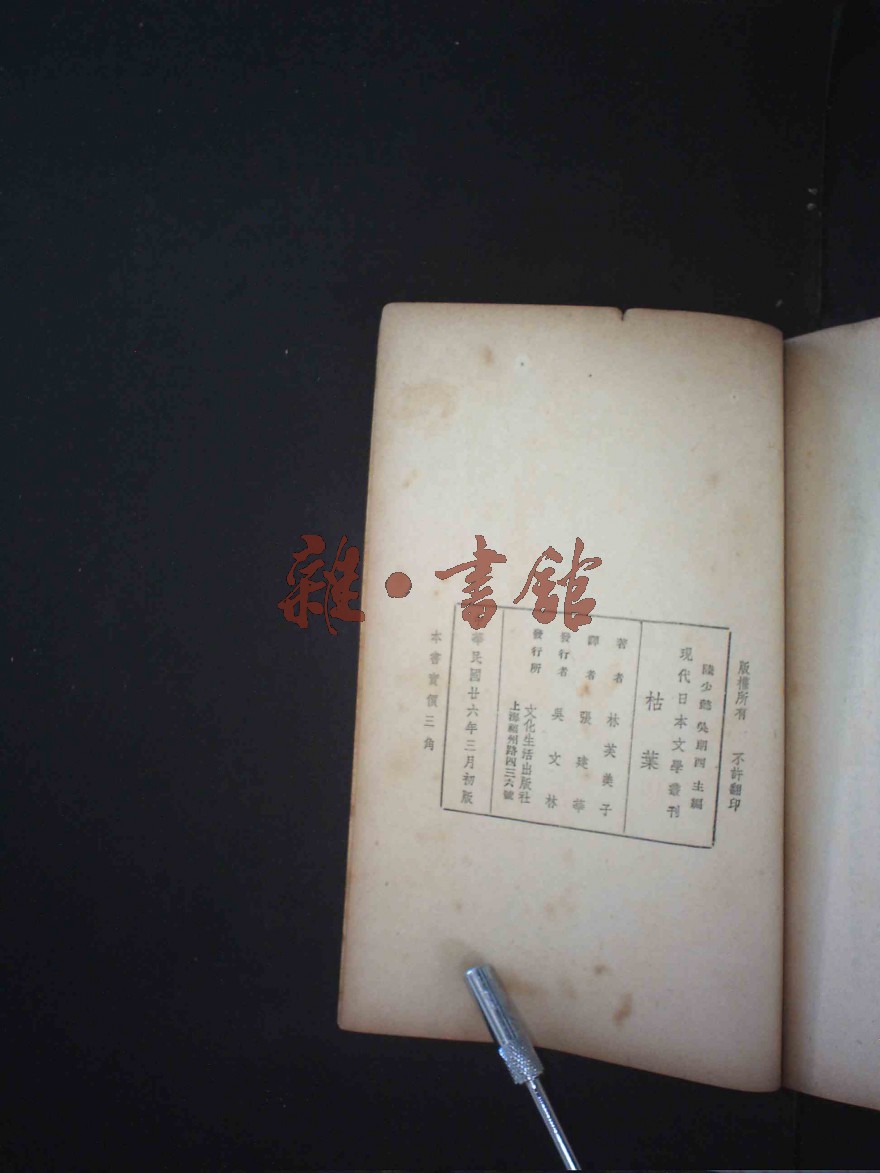 雜·書館
版權所有 不許翻印
陸少懿 吳朗西 主編
現代日本文學叢刊
枯葉
著者 林芙美子
譯者 張建華
發行者 吳文林
發行所 文化生活出版社
上海福州路四三六號
華民國廿六年三月初版
本書實價三角